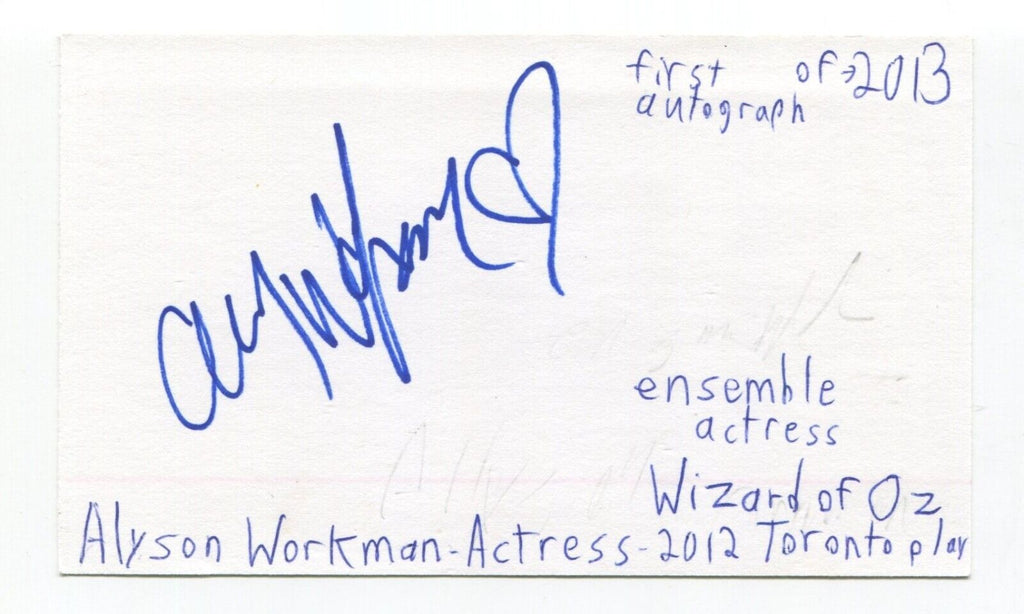 first of → 2013
autograph
ensemble
actress
Wizard of Oz
Alyson Workman - Actress - 2012 Toronto play